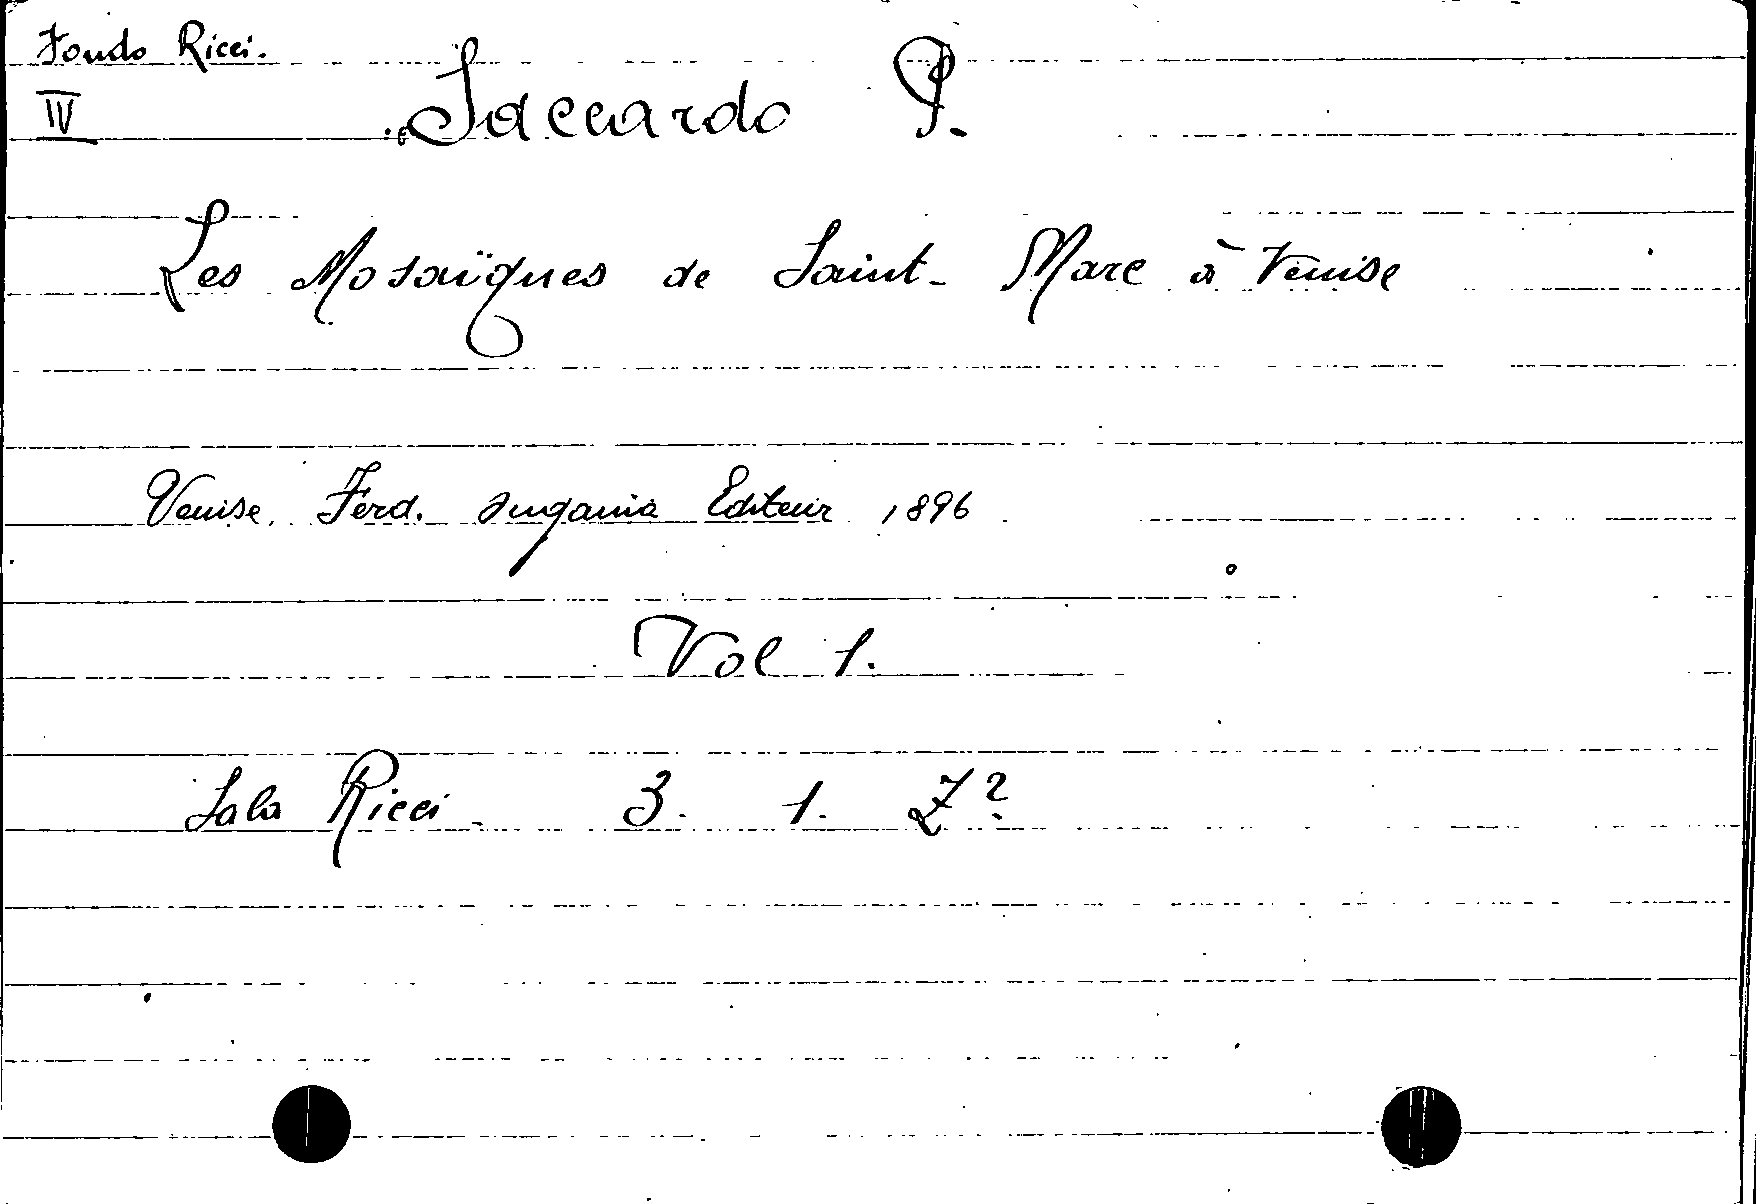 Fondo Ricci.
IV Saccardo P.
Les Mosaïques de Saint-Marc à Venise
Venise. Ferd. Ongania Editeur 1896
Vol 1.
Sala Ricci 3. 1. Z?